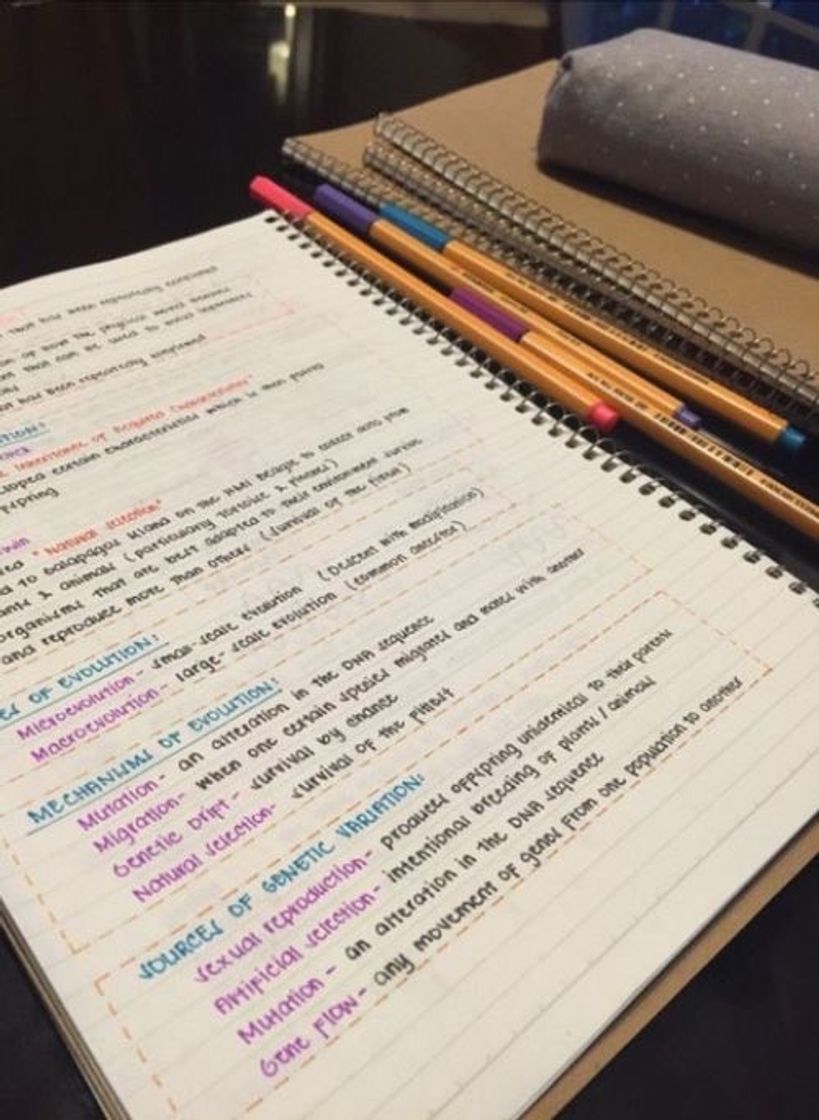 that has been repeatedly confirmed
of how the physical world
that can be used to
has been repeatedly confirmed
TION:
Inheritance of Acquired Characteristics"
certain characteristics which is then passed
"Natural Selection"
to Galapagos Island on the HMS Beagle to
& animals (particularly tortoise & finches)
organisms that are best adapted to their environment survive
and reproduce more than others (survival of the fittest)
OF EVOLUTION:
Microevolution- small-scale evolution (descent with modification)
Macroevolution- large-scale evolution (common ancestor)
MECHANISMS OF EVOLUTION:
Mutation- an alteration in the DNA sequence
Migration- when one certain species migrated and mates with another
Genetic Drift- survival by chance
Natural selection- survival of the fittest
SOURCES OF GENETIC VARIATION:
sexual reproduction- produces offspring unidentical to their parents
Artificial selection- intentional breeding of plants / animals
Mutation- an alteration in the DNA sequence
Gene flow- any movement of genes from one population to another